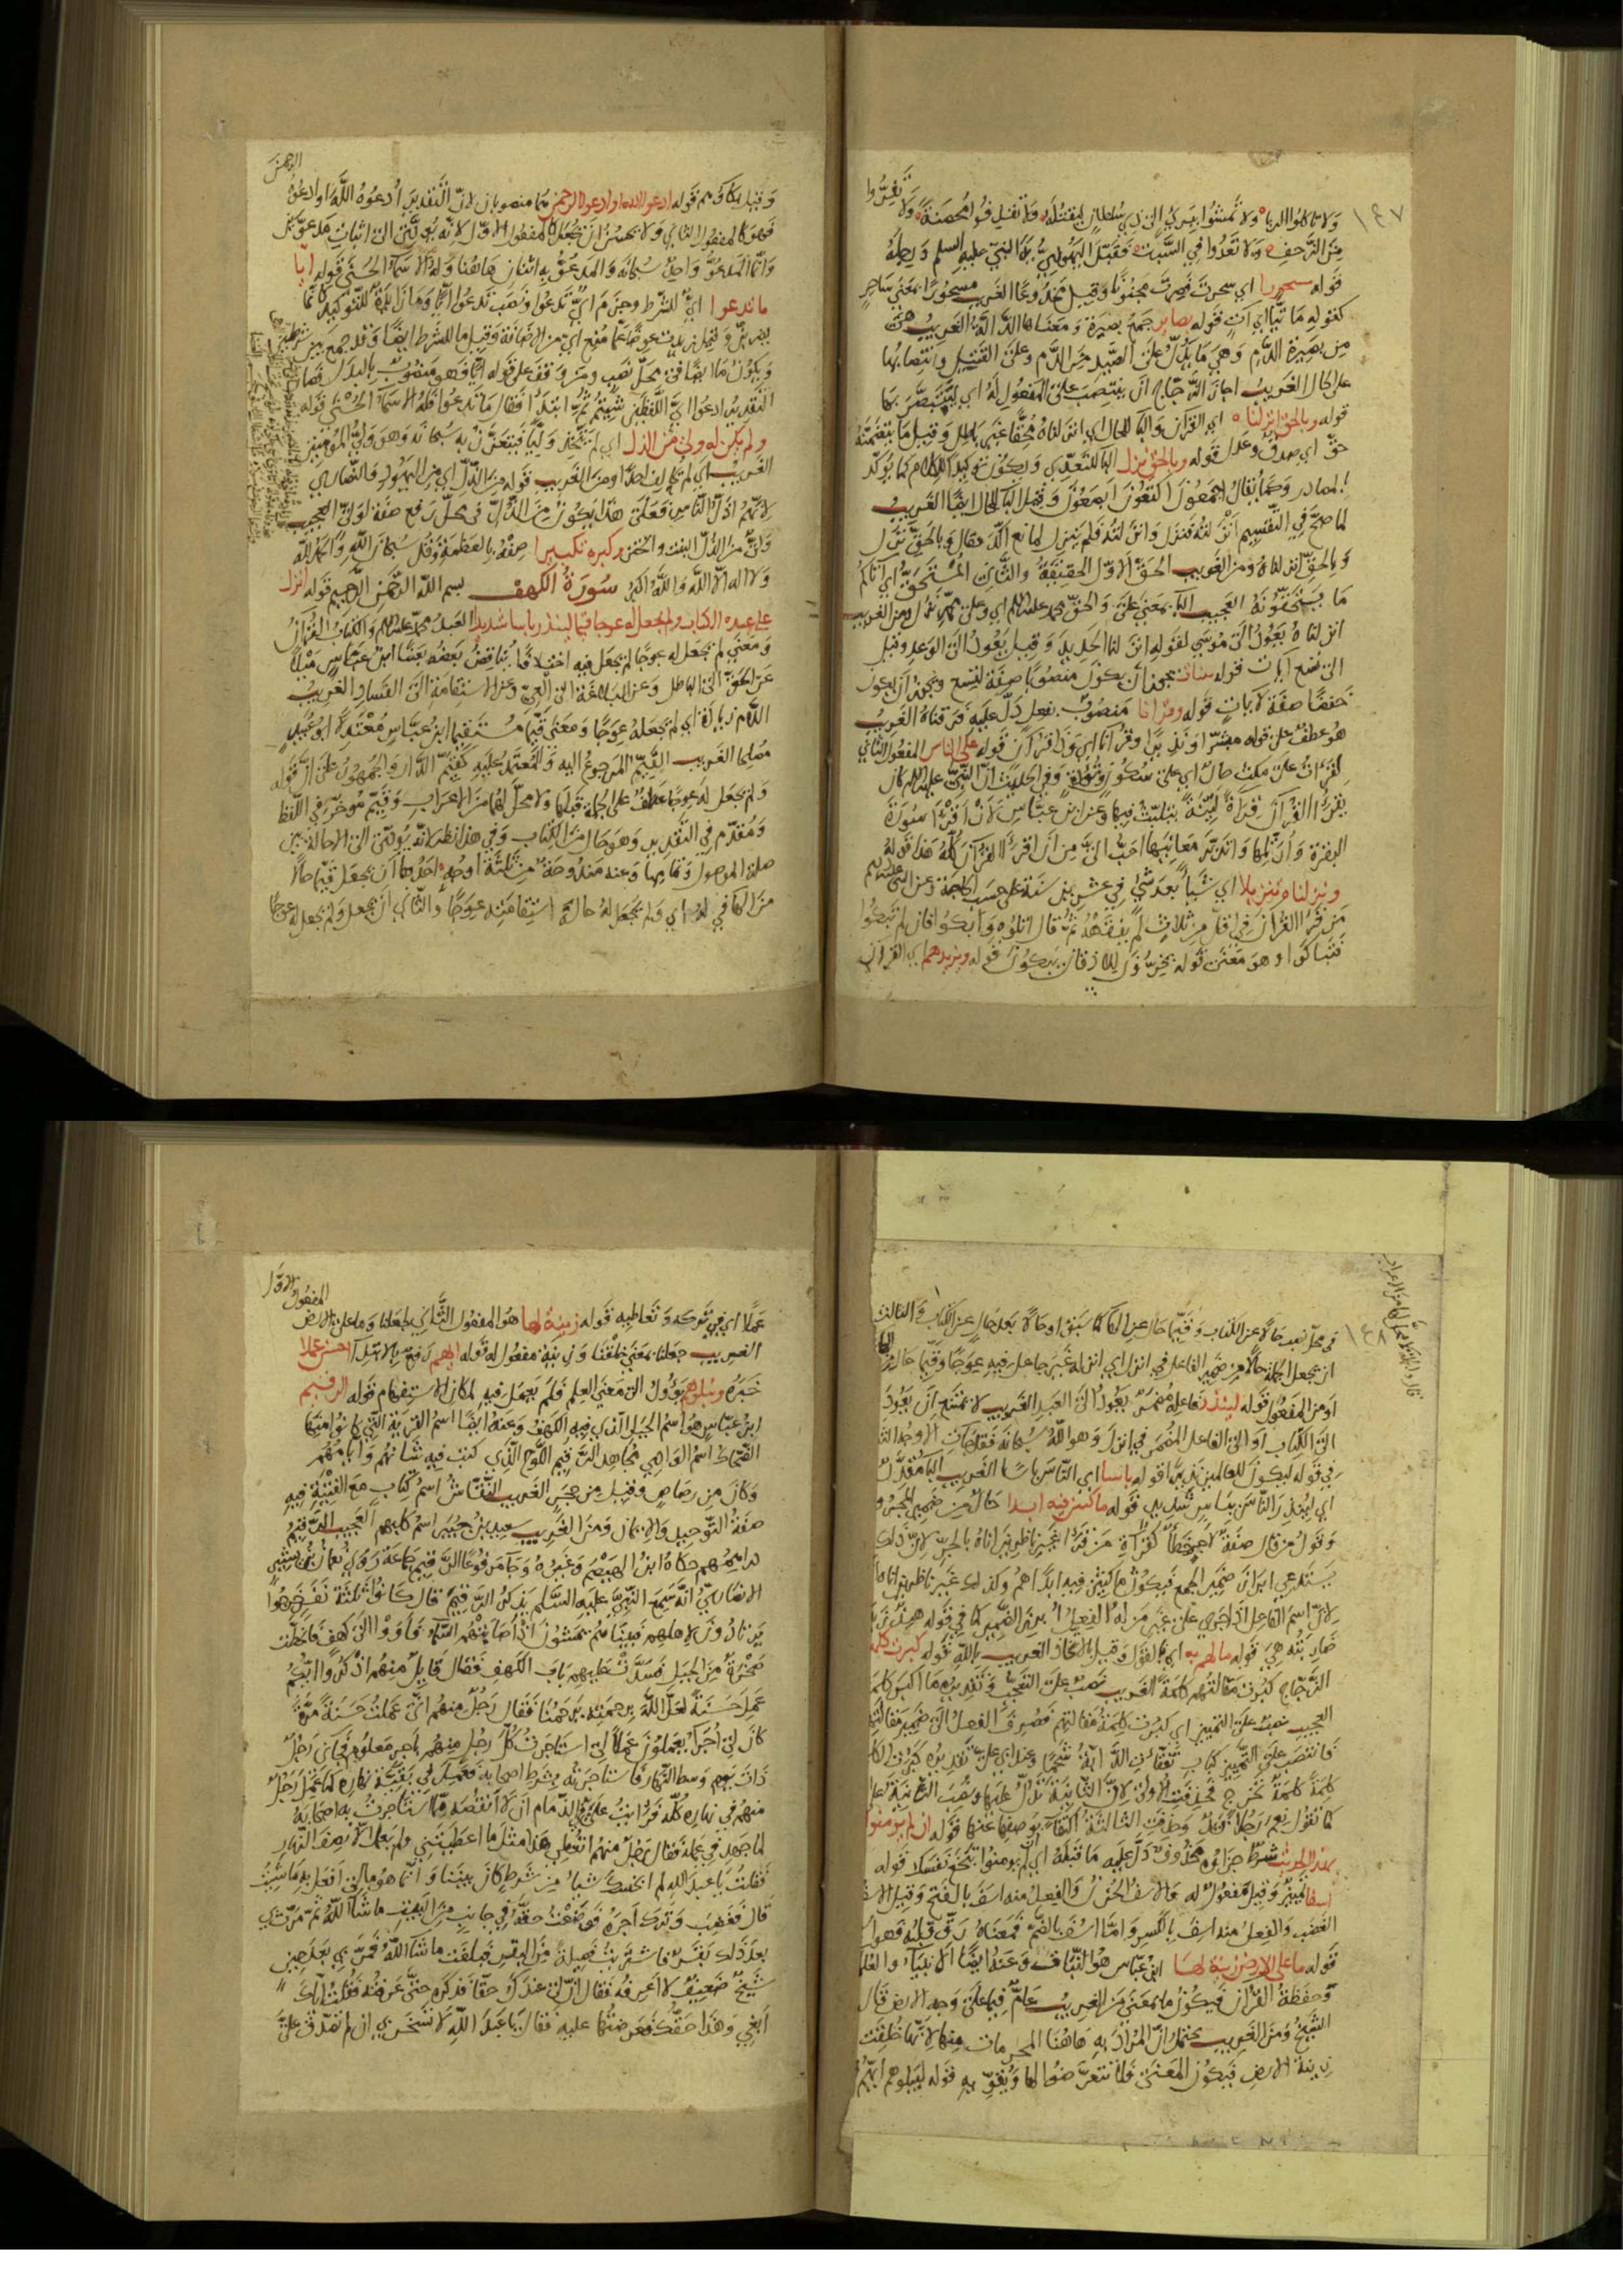 ١٤٧
ولا تاكلوا الربا ولا تمشوا ببريء الى ذي سلطان ليقتله ولا تقذفوا محصنة ولا تفروا
من الزحف ولا تعدوا في السبت فقبل اليهودي يد النبي عليه السلم ورجله
قوله مسحورا اي سحرت فصرت مجنونا وقيل مخدوعا الغريب مسحورا بمعنى ساحر
كقوله ماتيا اي آت قوله بصاير جمع بصيرة ومعناها الدلالة الغريب هي
من بصيرة الدم وهي ما يدل على الصيد من الدم وعلى القتيل وانتصابها
على الحال الغريب اجاز الزجاج ان ينتصب على المفعول له اي ليتبصر بها
قوله وبالحق انزلناه اي القرآن والبا للحال اي انزلناه محقا غير باطل وقيل ما يتضمنه
حق اي صدق وعدل قوله وبالحق نزل البا للتعدي ويكون توكيدا للكلام كما يوكد
بالمصادر وكما يقال اجمعون اكتعون ابصعون وقيل البا للحال ايضا الغريب
لما صح في التقسيم انزلته فنزل وانزلته فلم ينزل لمانع اكد فقال وبالحق نزل
وبالحق انزلناه ومن الغريب الحق الاول الحقيقة والثاني المستحق اي اتاكم
ما يستحقونه العجيب البا بمعنى على والحق محمد عليه السلم اي وعلى محمد نزل ومن الغريب
انزلناه يعود الى موسى لقوله انزلنا الحديد وقيل يعود الى الوعد وقيل
الى تسع آيات قوله بينات يجوز ان يكون منصوبا صفة لتسع ويجوز ان يكون
خفضا صفة لآيات قوله وقرانا منصوب بفعل دل عليه فرقناه الغريب
هو عطف على قوله مبشرا ونذيرا وقرآنا اي وذا قرآن قوله على الناس المفعول الثاني
لقرات على مكث حال اي على سكون وفي الحديث ان النبي عليه السلم كان
يقرأ القرآن قراة لينة يتلبث فيها وعن ابن عباس لان اقرا سورة
البقرة وارتلها واتدبر معانيها احب الي من ان اقرأ القرآن كله هذا قوله
ونزلناه تنزيلا اي شيا بعد شيء في عشرين سنة على حسب الحاجة وعن النبي عليه السلم
من قرا القرآن في اقل من ثلاث لم يفقهه ثم قال اتلوه وابكوا فان لم تبكوا
فتباكوا وهو معنى قوله يخرون للاذقان يبكون قوله ويزيدهم اي القرآن
وقيل بكاوهم قوله ادعوا الله او ادعوا الرحمن هما منصوبان لان التقدير ادعوه الله او ادعوه الرحمن
فهو كالمفعول الثاني ولا يحسن ان تجعل كالمفعول الاول لانه يودي الى اثبات مدعوين
وانما المدعو واحد سبحانه والمدعو به اثنان هاهنا وله الاسماء الحسنى قوله ايا
ما تدعوا اي للشرط وجزم اي تدعوا ونصب تدعوا ايا وما زايدة للتوكيد
وقيل زيدت عوضا عما منع اي من الاضافة وقيل ما للشرط ايضا وقد جمع بين شرطين
ويكون ما ايضا في محل نصب ومن وقف على قوله ايا فهو منصوب بالبدل فصار
التقدير ادعوا اي اللفظين شيتم ثم ابتدا فقال ما تدعوا فله الاسماء الحسنى قوله
ولم يكن له ولي من الذل اي لم يتخذ وليا فيتعزز به سبحانه وهو ولي المومنين
الغريب اي لم يحالف احدا ومن الغريب قوله من الذل اي من اليهود والنصارى
لانهم اذل الناس فعلى هذا يكون من الذل في محل رفع صفة لولي العجيب
وكبره تكبيرا صفه بالعظمة وقل سبحان الله والحمد لله
ولا اله الا الله والله اكبر سورة الكهف بسم الله الرحمن الرحيم قوله انزل
على عبده الكتاب ولم يجعل له عوجا قيما لينذر باسا شديدا العبد محمد عليه السلم والكتاب القرآن
ومعنى لم يجعل له عوجا لم يجعل فيه اختلافا يناقض بعضه بعضا ابن عباس ميلا
عن الحق الى الباطل وعن البلاغة الى العي وعن الاستقامة الى الفساد الغريب
اللام زيادة اي لم يجعله عوجا ومعنى قيما مستقيما ابن عباس معتدلا ابو عبيد
مصلحا الغريب القيم المرجوع اليه والمعتمد عليه كقيم الدار والجمهور على ان قوله
ولم يجعل له عوجا عطف على الجملة قبلها ولا محل لها من الاعراب وقيم موخر في اللفظ
ومقدم في التقدير وهو حال من الكتاب وفي هذا نظر لانه يودي الى الاحالة بين
صلة الموصول وتمامها وعنه مندوحة من ثلثة اوجه احدها ان يجعل قيما حالا
من الها في له اي ولم يجعل له حال استقامته عوجا والثاني ان يجعل ولم يجعل له عوجا
١٤٨
في محل نصب حالا عن الكتاب وقيما حال عن الها كما سبق او حالا بعد حال عن الكتاب والثالث
ان يجعل الجملة حالا من ضمير الفاعل في انزل اي انزله غير جاعل فيه عوجا وقيما حال من الها
او من المفعول قوله لينذر فاعله مضمر يعود الى العبد الغريب لا يمتنع ان يعود
الى الكتاب او الى الفاعل المضمر في انزل وهو الله سبحانه فقد جات الاوجه
في قوله ليكون للعالمين نذيرا قوله باسا اي الناس باسا الغريب البا مقدر
اي لينذر الناس بباس شديد قوله ماكثين فيه ابدا حال من ضمير
وقول من قال صفة لاجر خطأ كقراة من قرا غير ناظرين اناه بالجر لان ذلك
يستدعي ابراز ضمير الجمع فيكون ماكثين فيه ابدا هم وكذلك غير ناظرين اناه
لان اسم الفاعل اذا جرى على غير من له الفعل ابرز الضمير كما في قوله هند زيد
ضاربته هي قوله ما لهم به اي بالقول وقيل بالاتخاذ الغريب بالله قوله كبرت كلمة
الزجاج كبرت مقالتهم كلمة الغريب نصب على التعجب وتقديره ما اكبر كلمة
العجيب نصب على التمييز اي كبرت كلمة مقالتهم فصرف الفعل الى ضمير مقالتهم
فانتصب على التمييز
كلمة كلمة تخرج فحذفت الاولى لان الثانية تدل عليها ونصب الثانية
كما تقول نعم رجلا وحذفت الثالثة اكتفاء بوصفها عنها قوله ان لم يومنوا
بهذا الحديث شرط جزاؤه محذوف دل عليه ما قبله اي ان لم يومنوا تبخع نفسك قوله
اسفا تمييز وقيل مفعول له والاسف الحزن والفعل منه اسف بالفتح وقيل الاسف
الغضب والفعل منه اسف بالكسر واما اسف بالضم فمعناه رق قلبه فهو
قوله ما على الارض زينة لها ابن عباس هو النبات وعنه ايضا الانبياء والعلما
وحفظة القرآن فيكون ما بمعنى من الغريب عام فيما على وجه الارض قال
الشيخ ومن الغريب يحتمل ان المراد به هاهنا المحرمات منها لانها خلقت
زينة الارض فيكون المعنى فلا تتعرضوا لها قوله ليبلوهم ايهم
عملا اي في تركه وتعاطيه قوله زينة لها هو المفعول الثاني لجعلنا وما على الارض المفعول الاول
الغريب جعلنا بمعنى خلقنا وزينة مفعول له قوله ايهم رفع بالابتدا احسن عملا
خبره ونبلوهم يؤول الى معنى العلم فلم يعمل فيه لمكان الاستفهام قوله الرقيم
ابن عباس هو اسم الجبل الذي فيه الكهف وعنه ايضا اسم القرية التي كانوا منها
الضحاك اسم الوادي مجاهد الرقيم اللوح الذي كتب فيه شانهم واباؤهم
وكان من رصاص وقيل من حجر الغريب النقاش اسم كتاب مع الفتية فيه
صفة التوحيد والايمان ومن الغريب سعيد بن جبير اسم كلبهم العجيب الرقيم
دراهمهم حكاه ابن الهيصم وغيره وجا مرفوعا الرقيم جماعة روى نعمان بن بشير
الانصاري انه سمع النبي عليه السلام يذكر الرقيم قال كانوا ثلثة نفر خرجوا
يرتادون لاهلهم فبينا هم يمشون اذ اصابتهم السماء فاووا الى كهف فانحطت
صخرة من الجبل فسدت عليهم باب الكهف فقال قايل منهم اذكروا ايكم
عمل حسنة لعل الله برحمته يرحمنا فقال رجل منهم اني عملت حسنة مرة
كان لي اجراء يعملون عملا لي استاجرت كل رجل منهم باجر معلوم فجاني رجل
ذات يوم وسط النهار فاستاجرته بشرط اصحابه فعمل في بقية نهاره كما عمل رجل
منهم في نهاره كله فرايت علي في الذمام ان لا انقصه مما استاجرت به اصحابه
لما جهد في عمله فقال رجل منهم اتعطي هذا مثل ما اعطيتني ولم يعمل الا نصف النهار
فقلت يا عبد الله لم ابخسك شيا من شرط كان بيننا وانما هو مالي افعل به ما شيت
قال فغضب وترك اجره فوضعت حقه في جانب من البيت ما شاء الله ثم مرت بي
بعد ذلك بقر فاشتريت فصيلة من البقر فبلغت ما شاء الله فمر بي بعد حين
شيخ ضعيف لا اعرفه فقال ان لي عندك حقا فذكره حتى عرفته فقلت اياك
ابغي وهذا حقك فعرضتها عليه فقال يا عبد الله لا تسخر بي ان لم تصدق علي